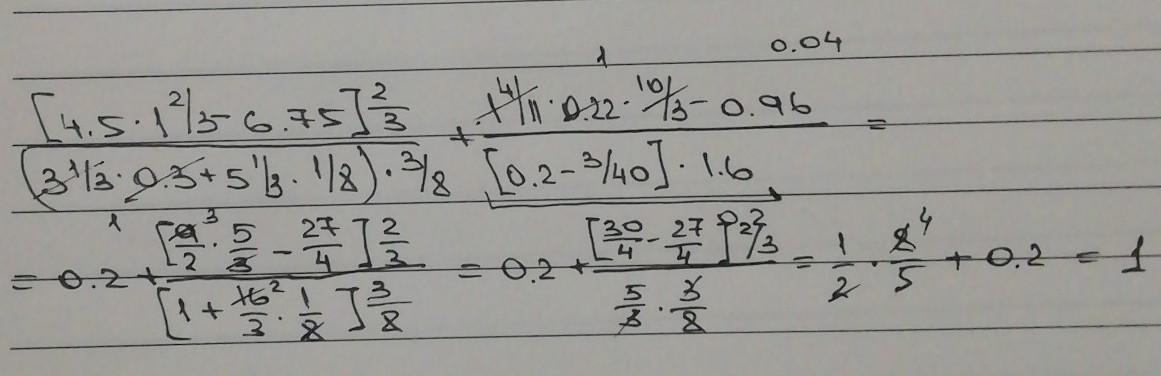 1 0.04
[4.5 · 1 2/3 - 6.75] 2/3 / (3 1/3 · 0.3 + 5 1/3 · 1/8) · 3/8 + 1 4/11 · 0.22 · 10/3 - 0.96 / [0.2 - 3/40] · 1.6 =
= 0.2 + [9/2 · 5/3 - 27/4] 2/3 / [1 + 16/3 · 1/8] 3/8 = 0.2 + [30/4 - 27/4] 2/3 / 5/3 · 3/8 = 1/2 · 8/5 + 0.2 = 1